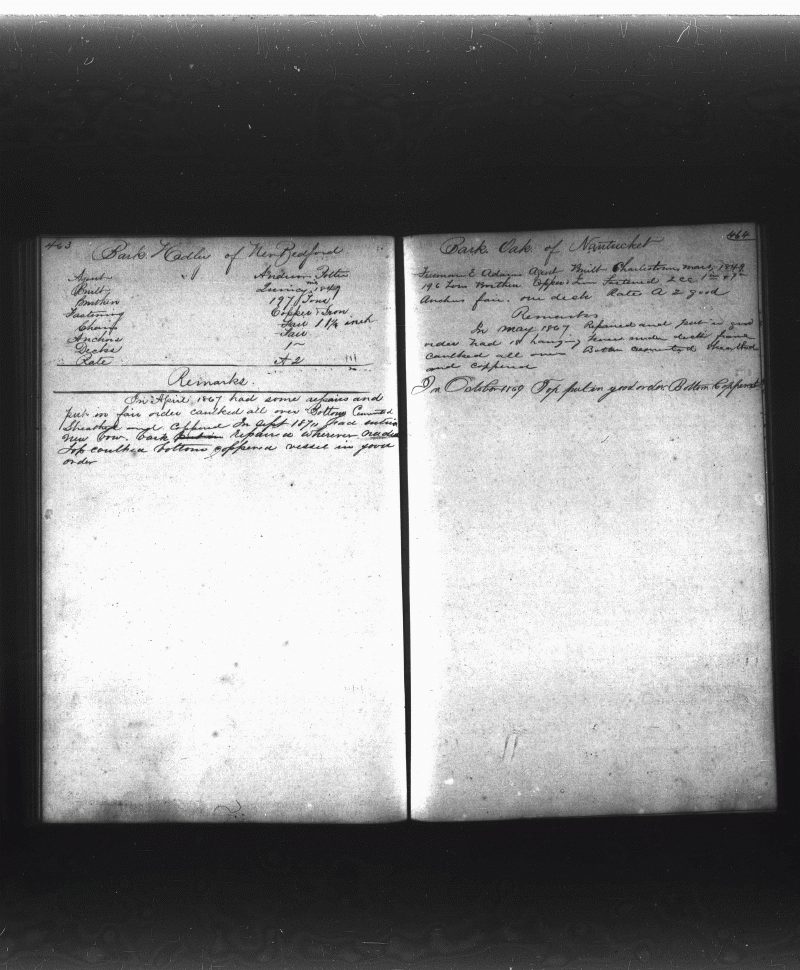 463
Bark Hadley of New Bedford
Agent " Andrew Potter
Built Quincy Ms 1849
Burthen 197 Tons
Fastening Copper & Iron
Chains Fair 1 1/4 inch
Anchors Fair
Decks 1
Rate A 2
Remarks.
In April 1867 had some repairs and
put in fair order caulked all over Bottom Cemented
Sheathed and Coppered In Sept 1870 had
new bow. back put in repaired wherever needed
Top caulked bottom coppered vessel in good
order
464
Bark Oak of Nantucket
Freeman E Adams Agent Built Charlestown, Mass, 1849
196 Tons Burthen Copper & Iron Fastened 2 CC
Anchors fair. one deck Rate A 2 good
Remarks
In May 1867 Repaired and put in good
order had 18 hanging knees under deck
caulked all over Bottom cemented sheathed
and coppered
In October 1869 Top put in good order Bottom Coppered